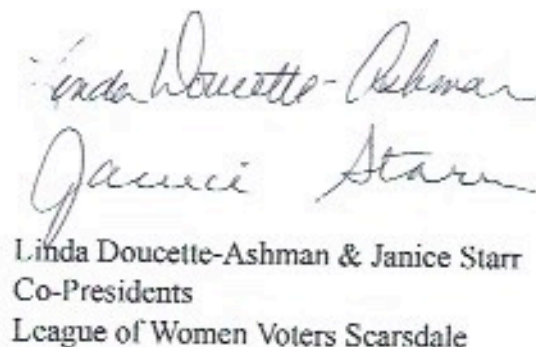 Linda Doucette-Ashman
Janice Starr
Linda Doucette-Ashman & Janice Starr
Co-Presidents
League of Women Voters Scarsdale